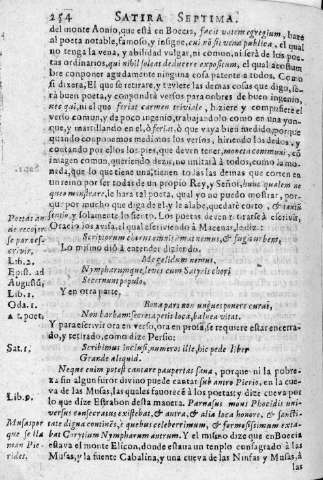 254 SATIRA SEPTIMA.
del monte Aonio, que está en Boecia, facit vatem egregium, haze
al poeta notable, famoso, y insigne, cui nõ sit vena publica, el qual
no tenga la vena, y abilidad vulgar, ni comun, ni será de los poe-
tas ordinarios, qui nihil soleat deducere expositum, el qual acostum
bre componer agudamente ninguna cosa patente a todos. Como
si dixera, El que se retirare, y tuuiere las demas cosas que digo, se-
rá buen poeta, y compondrá versos para onbres de buen ingenio,
nec qui, ni el que feriat carmen triuiale, hiziere y compusiere el
verso comun, y de poco ingenio, trabajandolo como en una yun-
que, y martillando en el, ò feriat, ò que vaya bien medido, porque
quando componemos medimos los versos, hiriendo los dedos, y
contando por ellos los pies, que deven tener, moneta communi, cõ
imagen comun, queriendo dezir, no imitará à todos, como la mo-
neda, que lo que tiene una, tienen todas las demas que corren en
un reino por ser todas de un propio Rey, y Señor, hunc qualem ne
queo monstrare, le hara tal poeta, qual yo no puedo mostrar, por-
que por mucho que diga de el, y le alabe, quedaré corto, & tantũ
sentio y solamente lo siento. Los poetas deven retirarse à escrivir,
Oracio los avisa, el qual escriviendo à Macenas, le dize:
Poetas an
de recoger
se por es-
crivir.
Scriptorum chorus omnis amat nemus, & fugit urbem,
Lo mismo diò a entender diziendo.
Lib. 2.
Epist. ad
Augustũ,
Me gelidum nemus,
Nympharumque, leues cum Satyris chori
Secernunt populo.
Lib. 1.
Oda. 1.
Y en otra parte,
Bona pars non ungues ponere curat,
a. t. poet.
Non barbam: secreta petit loca, balnea vitat.
Y para escrivir ora en verso, ora en prosa, se requiere estar encerra-
do, y retirado, como dize Persio:
Sat. 1.
Scribimus inclusi, numeros ille, hic pede liber
Grande aliquid.
Neque enim potest cantare paupertas sana, porque ni la pobre-
za sin algun furor divino puede cantar sub antro Pierio, en la cueva
de las Musas, las quales favorecẽ à los poetas, y dize cueva por
Lib. 9.
lo que dize Estrabon desta maneta. Parnasus mons Phocidis uni-
versus consecratus existebat, & antra, & alia loca honore, & sancti-
Musas por
que se lla
man Pie-
rides.
tate digna continẽs, è quibus celeberrimum, & formosissimum exta-
bat Corytium Nympharum antrum. Y el mismo dize que en Boecia
estava el monte Elicon, donde estava un templo consagrado à las
Musas, y la fuente Cabalina, y una cueva de las Ninfas y Musas, à
las